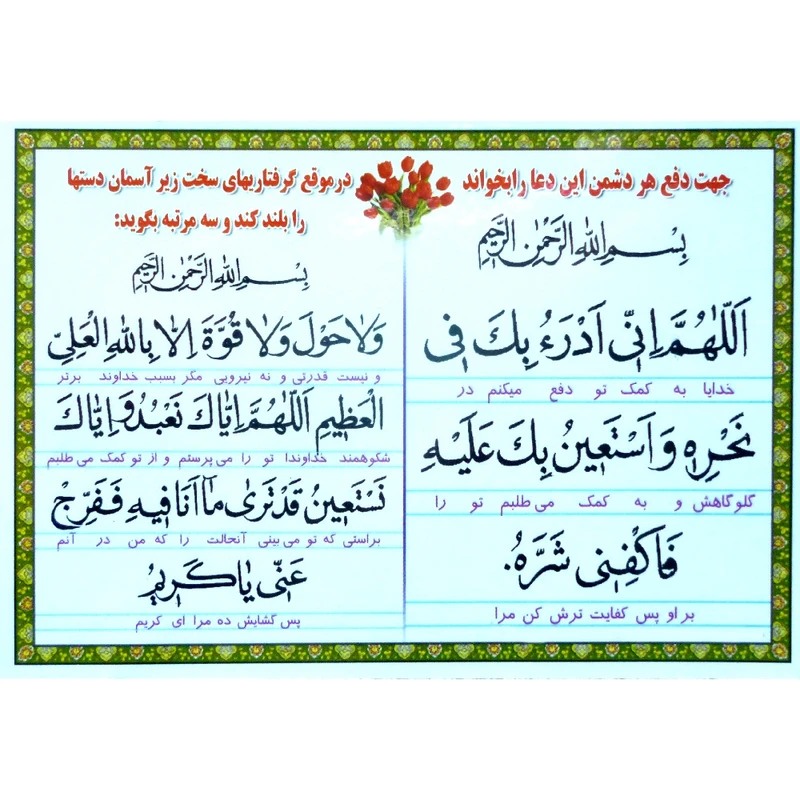 جهت دفع هر دشمن این دعا رابخواند
بِسْمِ اللهِ الرَّحْمٰنِ الرَّحِيمِ
اَللّٰهُمَّ اِنّى اَدْرَءُ بِكَ فى
خدایا به کمک تو دفع میکنم در
نَحْرِهِ وَاَسْتَعينُ بِكَ عَلَيْهِ
گلوگاهش و به کمک می‌طلبم تو را
فَاكْفِنى شَرَّهُ.
بر او پس کفایت ترش کن مرا
در موقع گرفتاریهای سخت زیر آسمان دستها
را بلند کند و سه مرتبه بگوید:
بِسْمِ اللهِ الرَّحْمٰنِ الرَّحِيمِ
وَلاحَوْلَ وَلاقُوَّةَ اِلّا بِاللهِ الْعَلِىِّ
و نیست قدرتی و نه نیرویی مگر بسبب خداوند برتر
الْعَظيمِ اَللّٰهُمَّ اِيّاكَ نَعْبُدُ وَاِيّاكَ
شکوهمند خداوندا تو را می‌پرستم و از تو کمک می‌طلبم
نَسْتَعينُ قَدْتَرىٰ ما اَنَا فيهِ فَفَرِّجْ
براستی که تو می‌بینی آنحالت را که من در آنم
عَنّى يا كَريمُ
پس گشایش ده مرا ای کریم